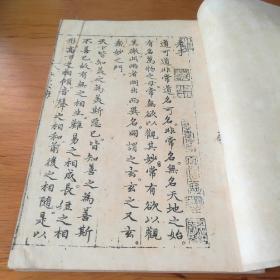 道可道非常道名可名非常名無名天地之始
有名萬物之母常無欲以觀其妙常有欲以觀
其徼此兩者同出而異名同謂之玄玄之又玄
衆妙之門
天下皆知美之為美斯惡已皆知善之為善斯
不善已故有無之相生難易之相成長短之相
形高下之相傾音聲之相和前後之相隨是以